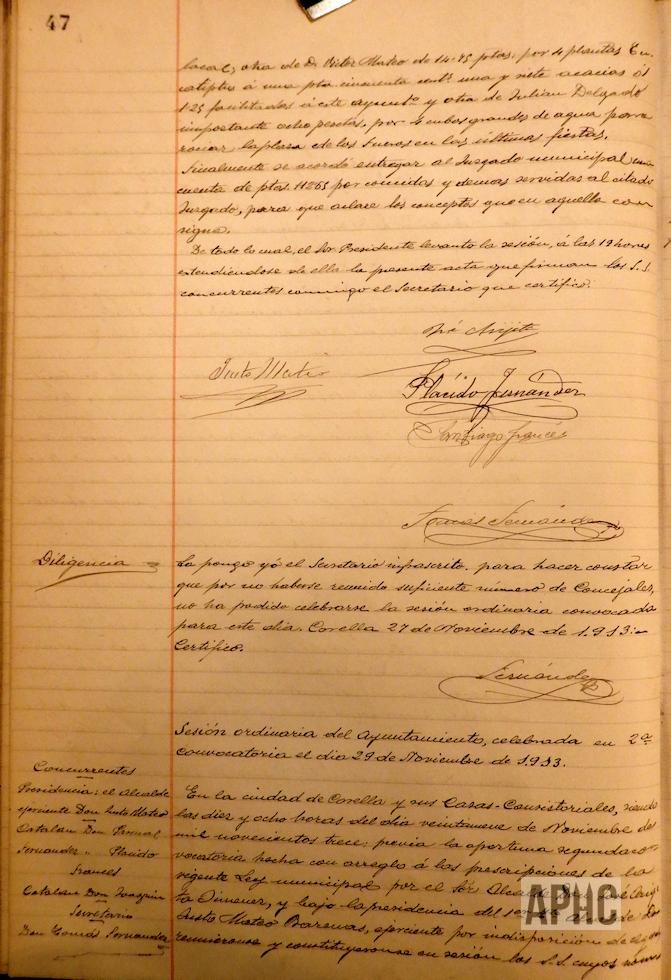 47
local; otra de D. Victor Mateo de 14'95 ptas. por 4 plantas Eu-
caliptus á una pta. cincuenta cents. una y siete acacias á
1'25 facilitadas á este ayunto. y otra de Julian Delgado
importante ocho pesetas, por cubos grandes de agua para
rociar la plaza de los Fueros en las últimas fiestas.
Finalmente se acordó entregar al Juzgado municipal una
cuenta de ptas. 112'65 por comidas y demas servidas al citado
Juzgado, para que aclare los conceptos que en aquella con
signa.
De todo lo cual, el Sr. Presidente levantó la sesión, á las 19 horas
extendiéndose de ella la presente acta que firman los S.S.
concurrentes conmigo el Secretario que certifico.
Justo Mateo
Plácido Fernández
Santiago Francés
Tomas Fernández
Diligencia
La pongo yó el Secretario infrascrito, para hacer constar
que por no haberse reunido suficiente número de Concejales,
no ha podido celebrarse la sesión ordinaria convocada
para este dia. Corella 27 de Noviembre de 1.913.=
Certifico.
Fernández
Sesión ordinaria del Ayuntamiento, celebrada en 2ª
convocatoria el dia 29 de Noviembre de 1.913.
Concurrentes
Presidencia: el Alcalde
ejerciente Don Justo Mateo
Catalan Don
Fernandez " Plácido
Frances
Catalan Don Joaquin
Secretario
Don Tomás Fernandez
En la ciudad de Corella y sus Casas-Consistoriales, siendo
las diez y ocho horas del dia veintinueve de Noviembre de
mil novecientos trece; previa la oportuna segunda con-
vocatoria hecha con arreglo á las prescripciones de la
vigente Ley municipal por el Sr. Alcalde
Jimenez, y bajo la presidencia del
Justo Mateo ejerciente por indisposición de
reunieronse y constituyeronse en sesión los S.S. cuyos nom
APHC